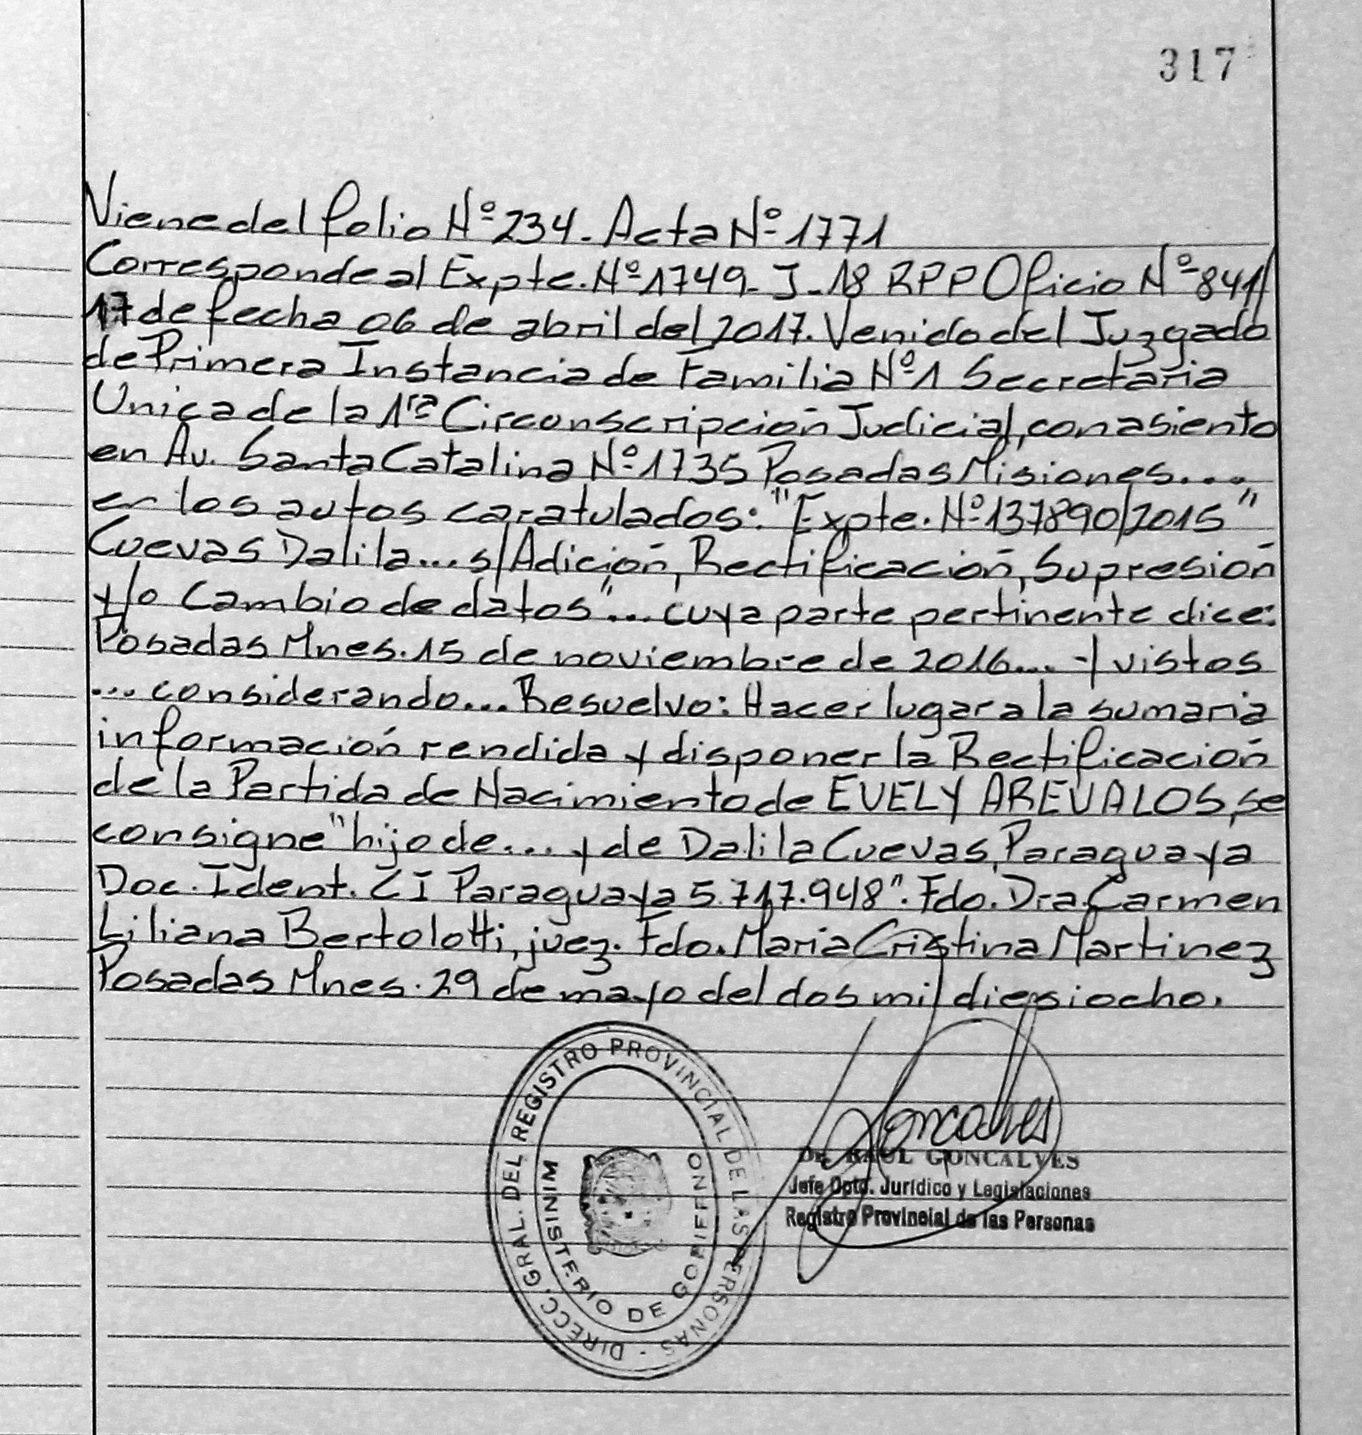 317
Viene del folio Nº 234. Acta Nº 1771
Corresponde al Expte. Nº 1749- J-18 RPP Oficio Nº 841/
17 de fecha 06 de abril del 2017. Venido del Juzgado
de Primera Instancia de Familia Nº1 Secretaria
Unica de la 1ra Circonscripción Judicial, con asiento
en Av. Santa Catalina Nº 1735 Posadas Misiones....
en los autos caratulados: "Expte. Nº 137890/2015"
Cuevas Dalila... s/Adición, Rectificación, Supresión
y/o Cambio de datos"... cuya parte pertinente dice:
Posadas Mnes. 15 de noviembre de 2016... y vistos
... considerando... Resuelvo: Hacer lugar a la sumaria
información rendida y disponer la Rectificación
de la Partida de Nacimiento de EVELY AREVALOS, se
consigne "hijo de... y de Dalila Cuevas, Paraguaya
Doc. Ident. CI Paraguaya 5.717.948". Fdo. Dra Carmen
Liliana Bertolotti, juez. Fdo. Maria Cristina Martinez
Posadas Mnes. 29 de mayo del dos mil diesiocho.
DIRECC. GRAL. DEL REGISTRO PROVINCIAL DE LAS PERSONAS -
MINISTERIO DE GOBIERNO
Goncalves
Dr. RAUL GONCALVES
Jefe Dpto. Jurídico y Legislaciones
Registro Provincial de las Personas